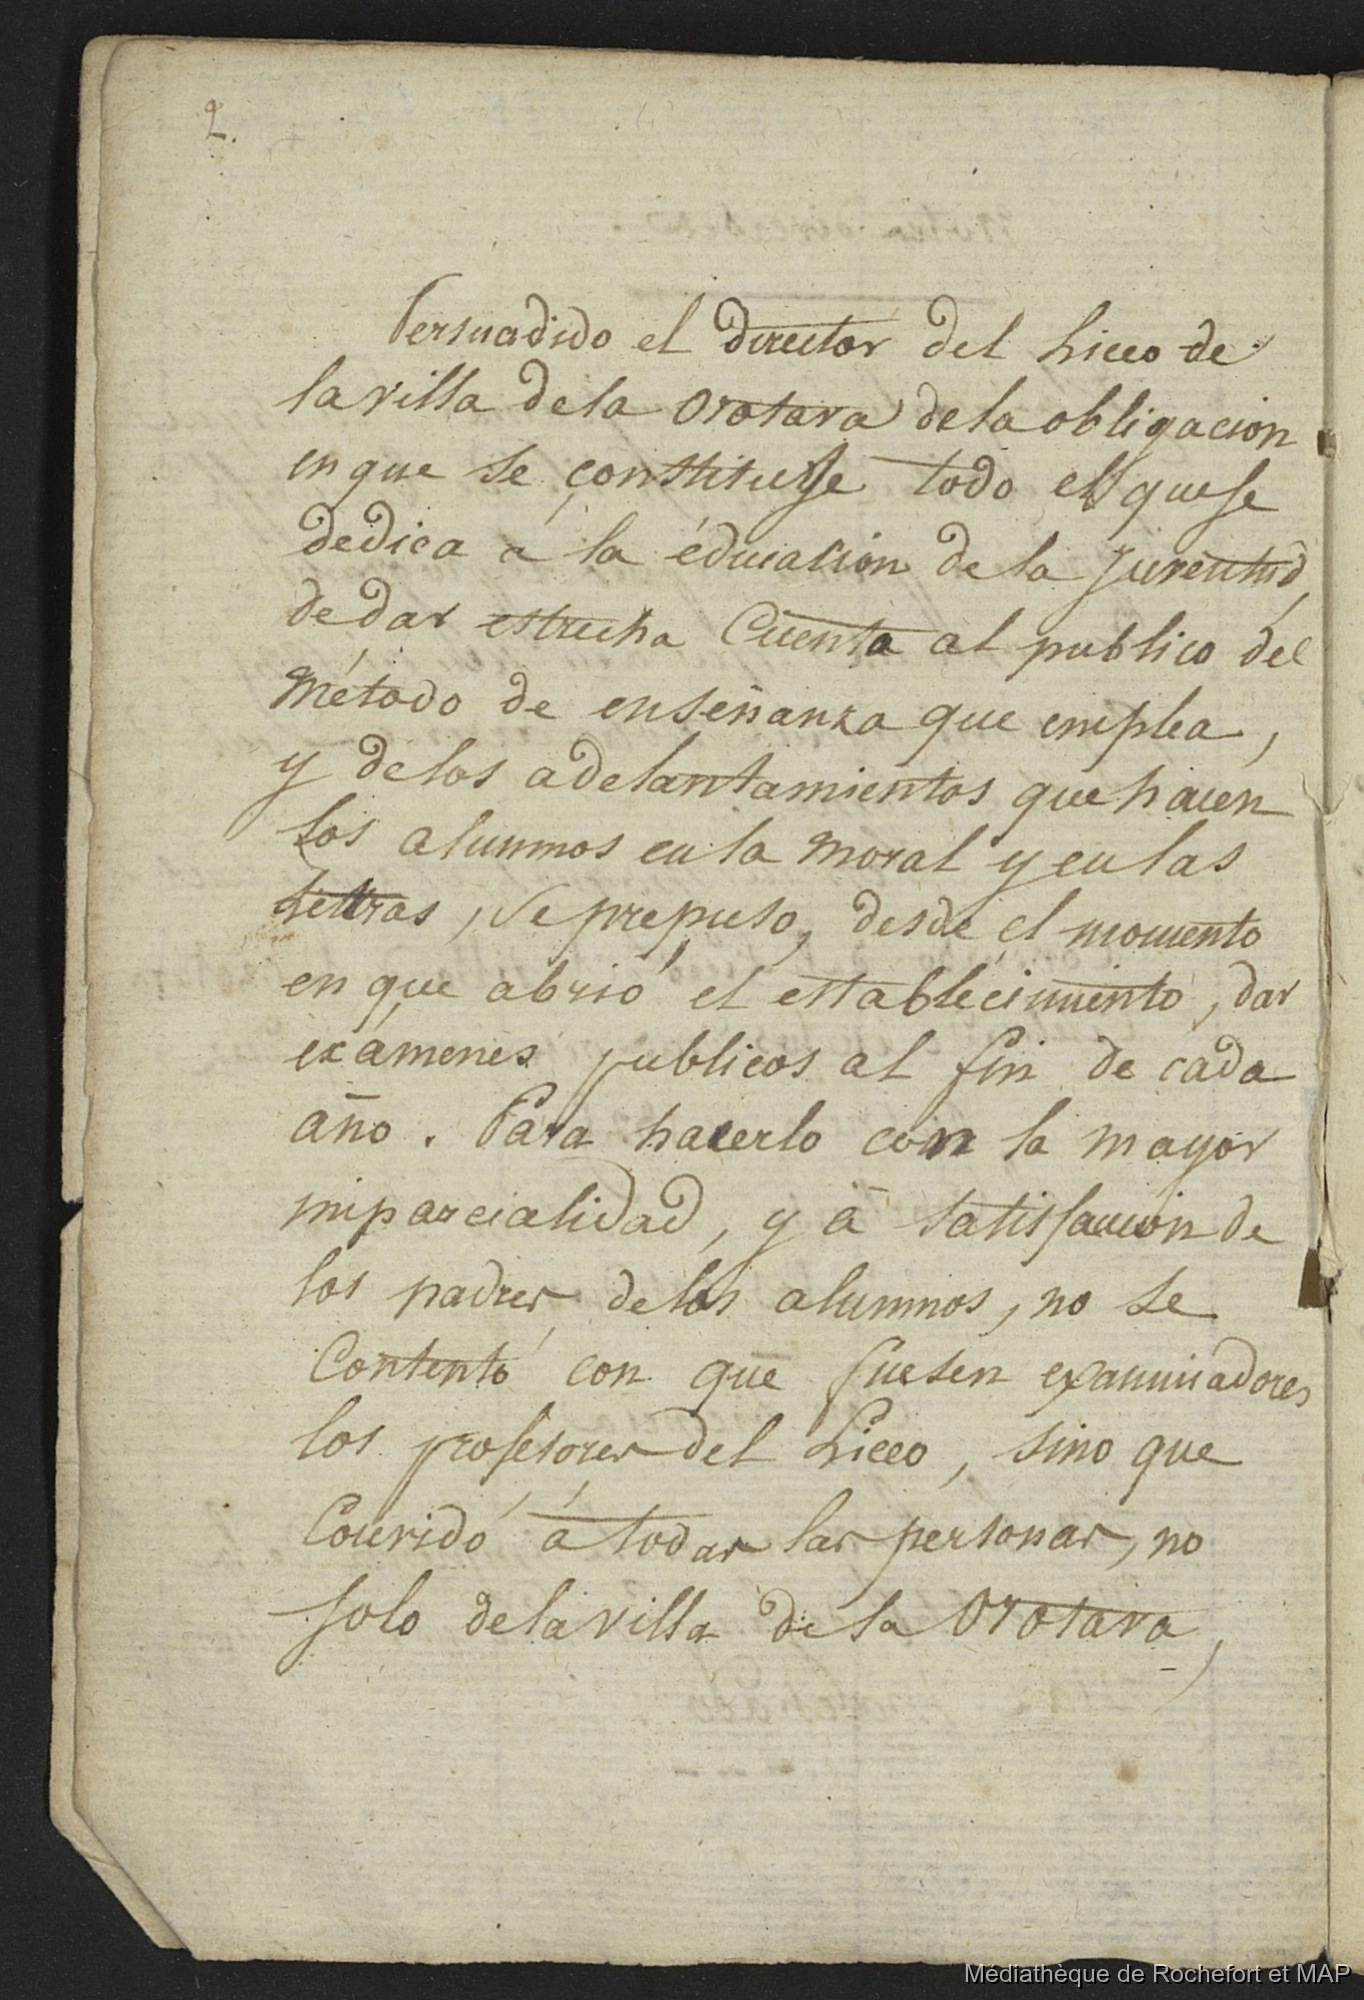 2.
Persuadido el director del Liceo de
la villa de la Orotava de la obligacion
en que se constituye todo el que se
dedica a la éducacion de la juventud,
de dar estrecha Cuenta al publico del
Método de enseñanza que emplea,
y de los adelantamientos que hacen
los alunmos en la moral y en las
Letras, se prepuso, desde el momento
en que abrió el establecimiento, dar
exámenes publicos al fin de cada
año. Para hacerlo con la mayor
imparcialidad, y á satisfaccion de
los padres de los alumnos, no se
Contentó con que fuesen examinadores
los profesores del Liceo, sino que
Convidó á todas las personas, no
solo de la villa de la Orotava,
Médiathèque de Rochefort et MAP